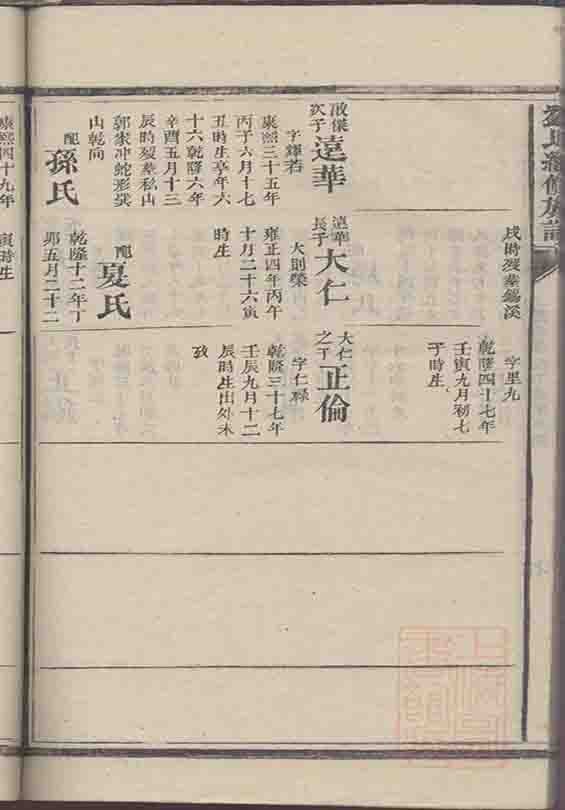 氏續修族譜
戌時歿葬錫溪
字里九
乾隆四十七年
壬寅九月初七
子時生
啟傑次子
遠華
字輝若
康熙三十五年
丙子六月十七
丑時生享年六
十六乾隆六年
辛酉五月十三
辰時歿葬私山
郭家冲蛇形巽
山乾向
配
孫氏
遠華長子
大仁
大則榮
雍正四年丙午
十月二十六寅
時生
配
夏氏
乾隆十二年丁
卯五月二十二
大仁之子
正倫
字仁祿
乾隆三十七年
壬辰九月十二
辰時生出外未
康熙四十九年
寅時生